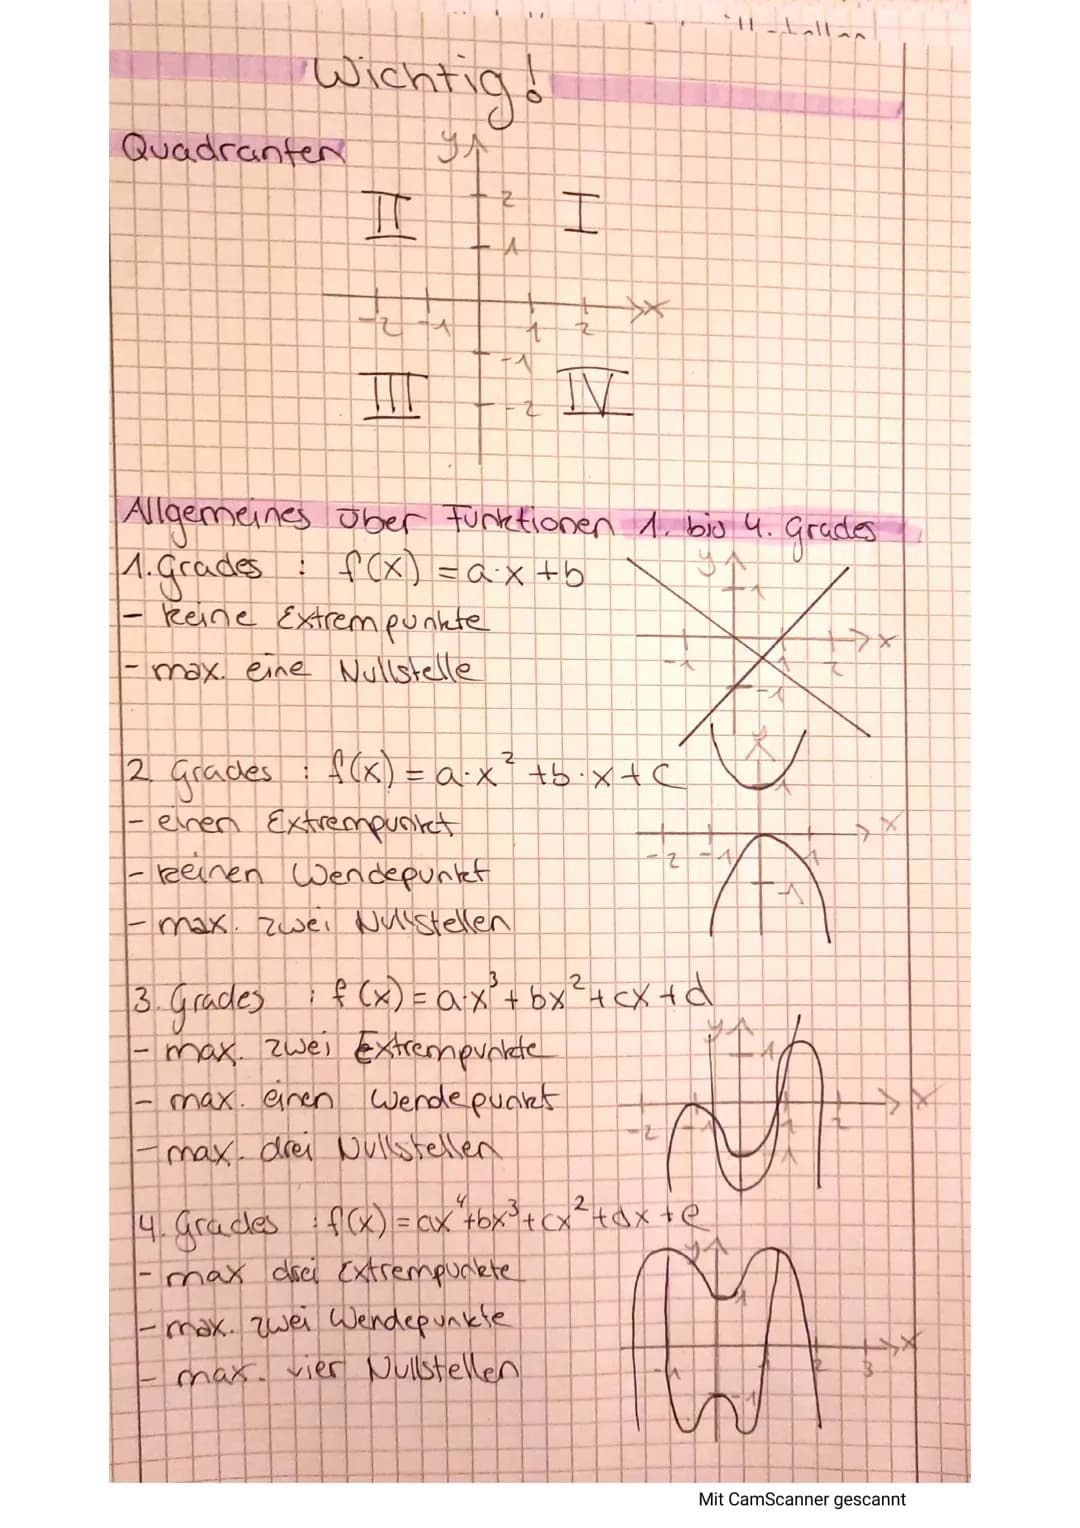 Wichtig!
Quadranten
y
II
2
I
1
-2 -1
1 2
x
-1
III
-2
IV
Allgemeines über Funktionen 1. bis 4. Grades
1. Grades : f(x) = a·x + b
- keine Extrempunkte
- max. eine Nullstelle
y
1
x
-1
1
2
-1
2. Grades : f(x) = a·x² + b·x + c
- einen Extrempunkt
- keinen Wendepunkt
- max. zwei Nullstellen
1
x
-2 -1
1
-1
3. Grades : f(x) = a·x³ + bx² + cx + d
- max. zwei Extrempunkte
- max. einen Wendepunkt
- max. drei Nullstellen
y
1
x
-2
-1
1
2
4. Grades : f(x) = ax⁴+bx³+cx²+dx+e
- max drei Extrempunkte
- max. zwei Wendepunkte
- max. vier Nullstellen
y
1
x
-1
1
2
3
-1
Mit CamScanner gescannt